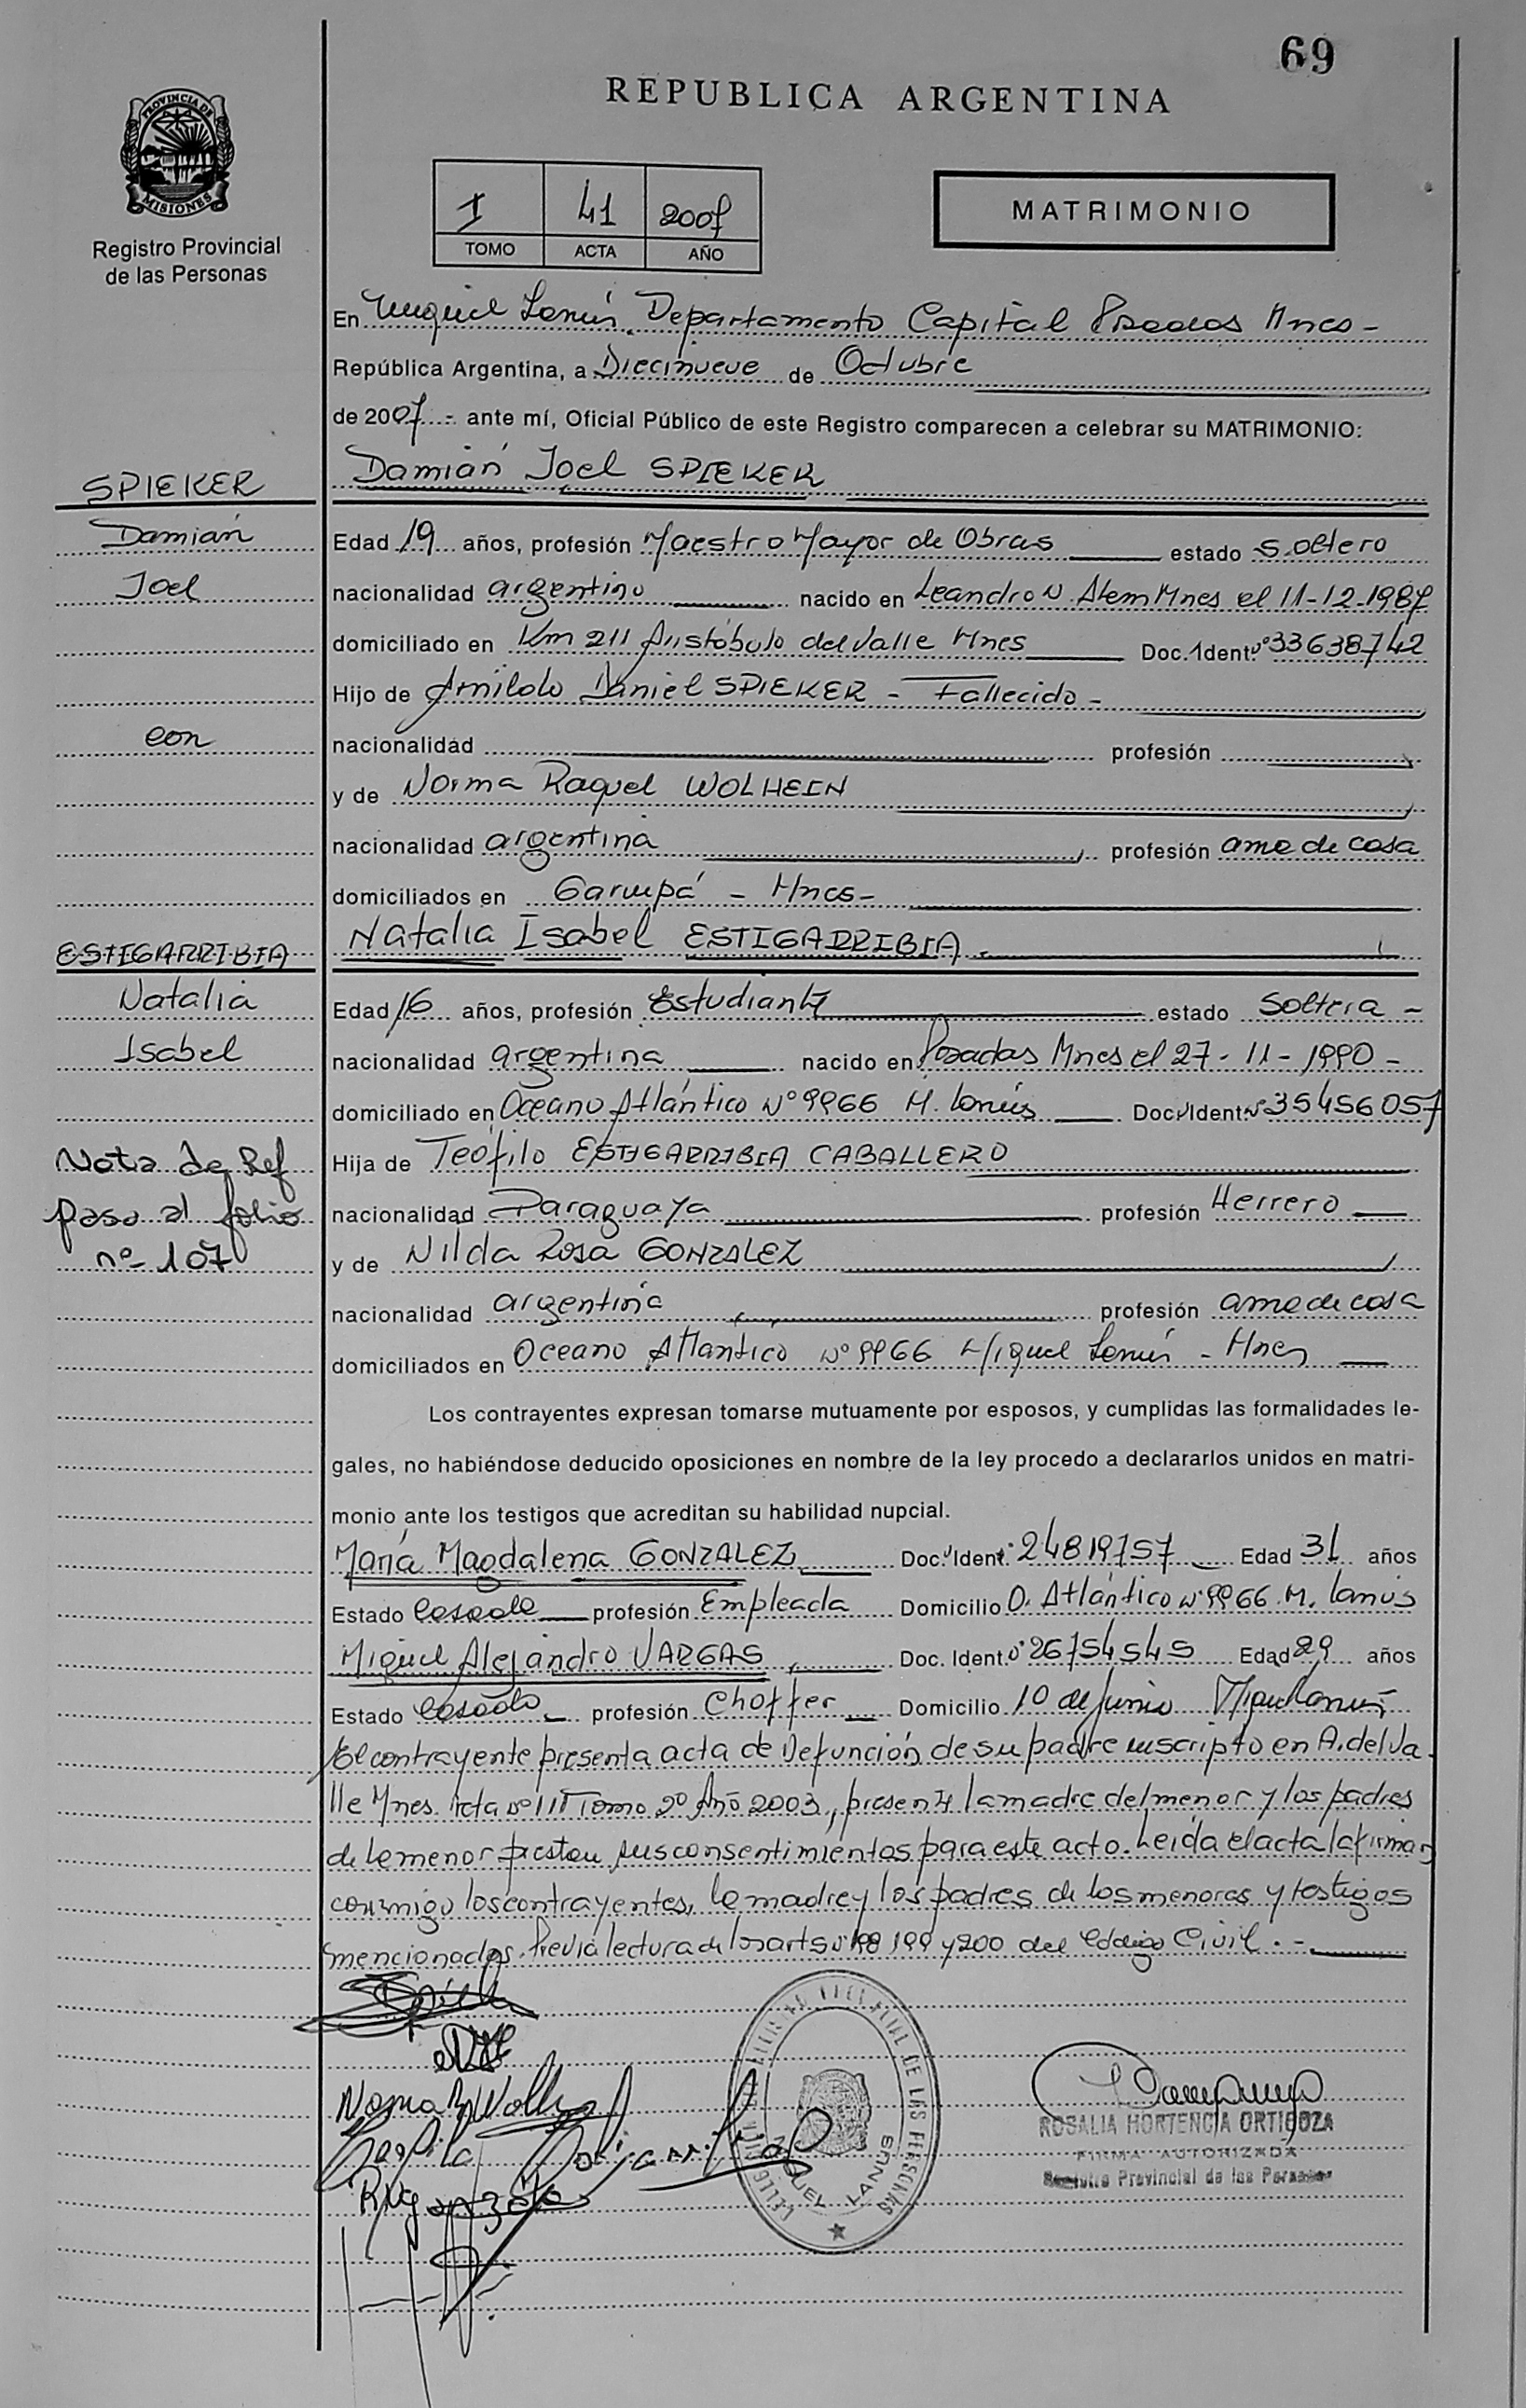 69
REPUBLICA ARGENTINA
PROVINCIA DE
MISIONES
Registro Provincial
de las Personas
1 41 2007
TOMO ACTA AÑO
MATRIMONIO
En Miguel Lanús, Departamento Capital Posadas Mnes -
República Argentina, a Diecinueve de Octubre
de 2007.- ante mí, Oficial Público de este Registro comparecen a celebrar su MATRIMONIO:
SPIEKER
Damián Joel SPIEKER
Damián
Edad 19 años, profesión Maestro Mayor de Obras estado soltero
Joel
nacionalidad argentino nacido en Leandro N. Alem Mnes el 11-12-1987
domiciliado en Km 211 Aristóbulo del Valle Mnes Doc. Ident. Nº 33638742
Hijo de Arnildo Daniel SPIEKER - Fallecido -
con
nacionalidad profesión
y de Norma Raquel WOLHEIN
nacionalidad argentina profesión ama de casa
domiciliados en Garupá - Mnes -
ESTIGARRIBIA
Natalia Isabel ESTIGARRIBIA.
Natalia
Edad 16 años, profesión Estudiante estado Soltera -
Isabel
nacionalidad argentina nacido en Posadas Mnes el 27-11-1990 -
domiciliado en Oceano Atlántico Nº 9966 M. Lanús Doc. Ident. Nº 35456057
Nota de Ref
Hija de Teófilo ESTIGARRIBIA CABALLERO
paso al folio
nacionalidad Paraguaya profesión Herrero
nº 107
y de Nilda Rosa GONZALEZ
nacionalidad argentina profesión ama de casa
domiciliados en Oceano Atlantico Nº 9966 Miguel Lanús - Mnes
Los contrayentes expresan tomarse mutuamente por esposos, y cumplidas las formalidades le-
gales, no habiéndose deducido oposiciones en nombre de la ley procedo a declararlos unidos en matri-
monio ante los testigos que acreditan su habilidad nupcial.
María Magdalena GONZALEZ Doc. Ident. 24819757 Edad 31 años
Estado Casada profesión Empleada Domicilio O. Atlántico Nº 9966 M. Lanús
Miguel Alejandro VARGAS Doc. Ident. Nº 26754545 Edad 29 años
Estado Casado profesión Choffer Domicilio 10 de Junio Miguel Lanús
El contrayente presenta acta de Defunción de su padre inscripto en A. del Va-
lle Mnes. Acta Nº 111 Tomo 2º Año 2003, presente la madre del menor y los padres
de la menor prestan sus consentimientos para este acto. Leída el acta la firman
conmigo los contrayentes, la madre y los padres de los menores y testigos
mencionados. Previa lectura de los arts Nº 198 199 y 200 del Código Civil. -
MIGUEL LANUS
DE LAS PERSONAS
ROSALIA HORTENCIA ORTIGOZA
FIRMA AUTORIZADA
Registro Provincial de las Personas